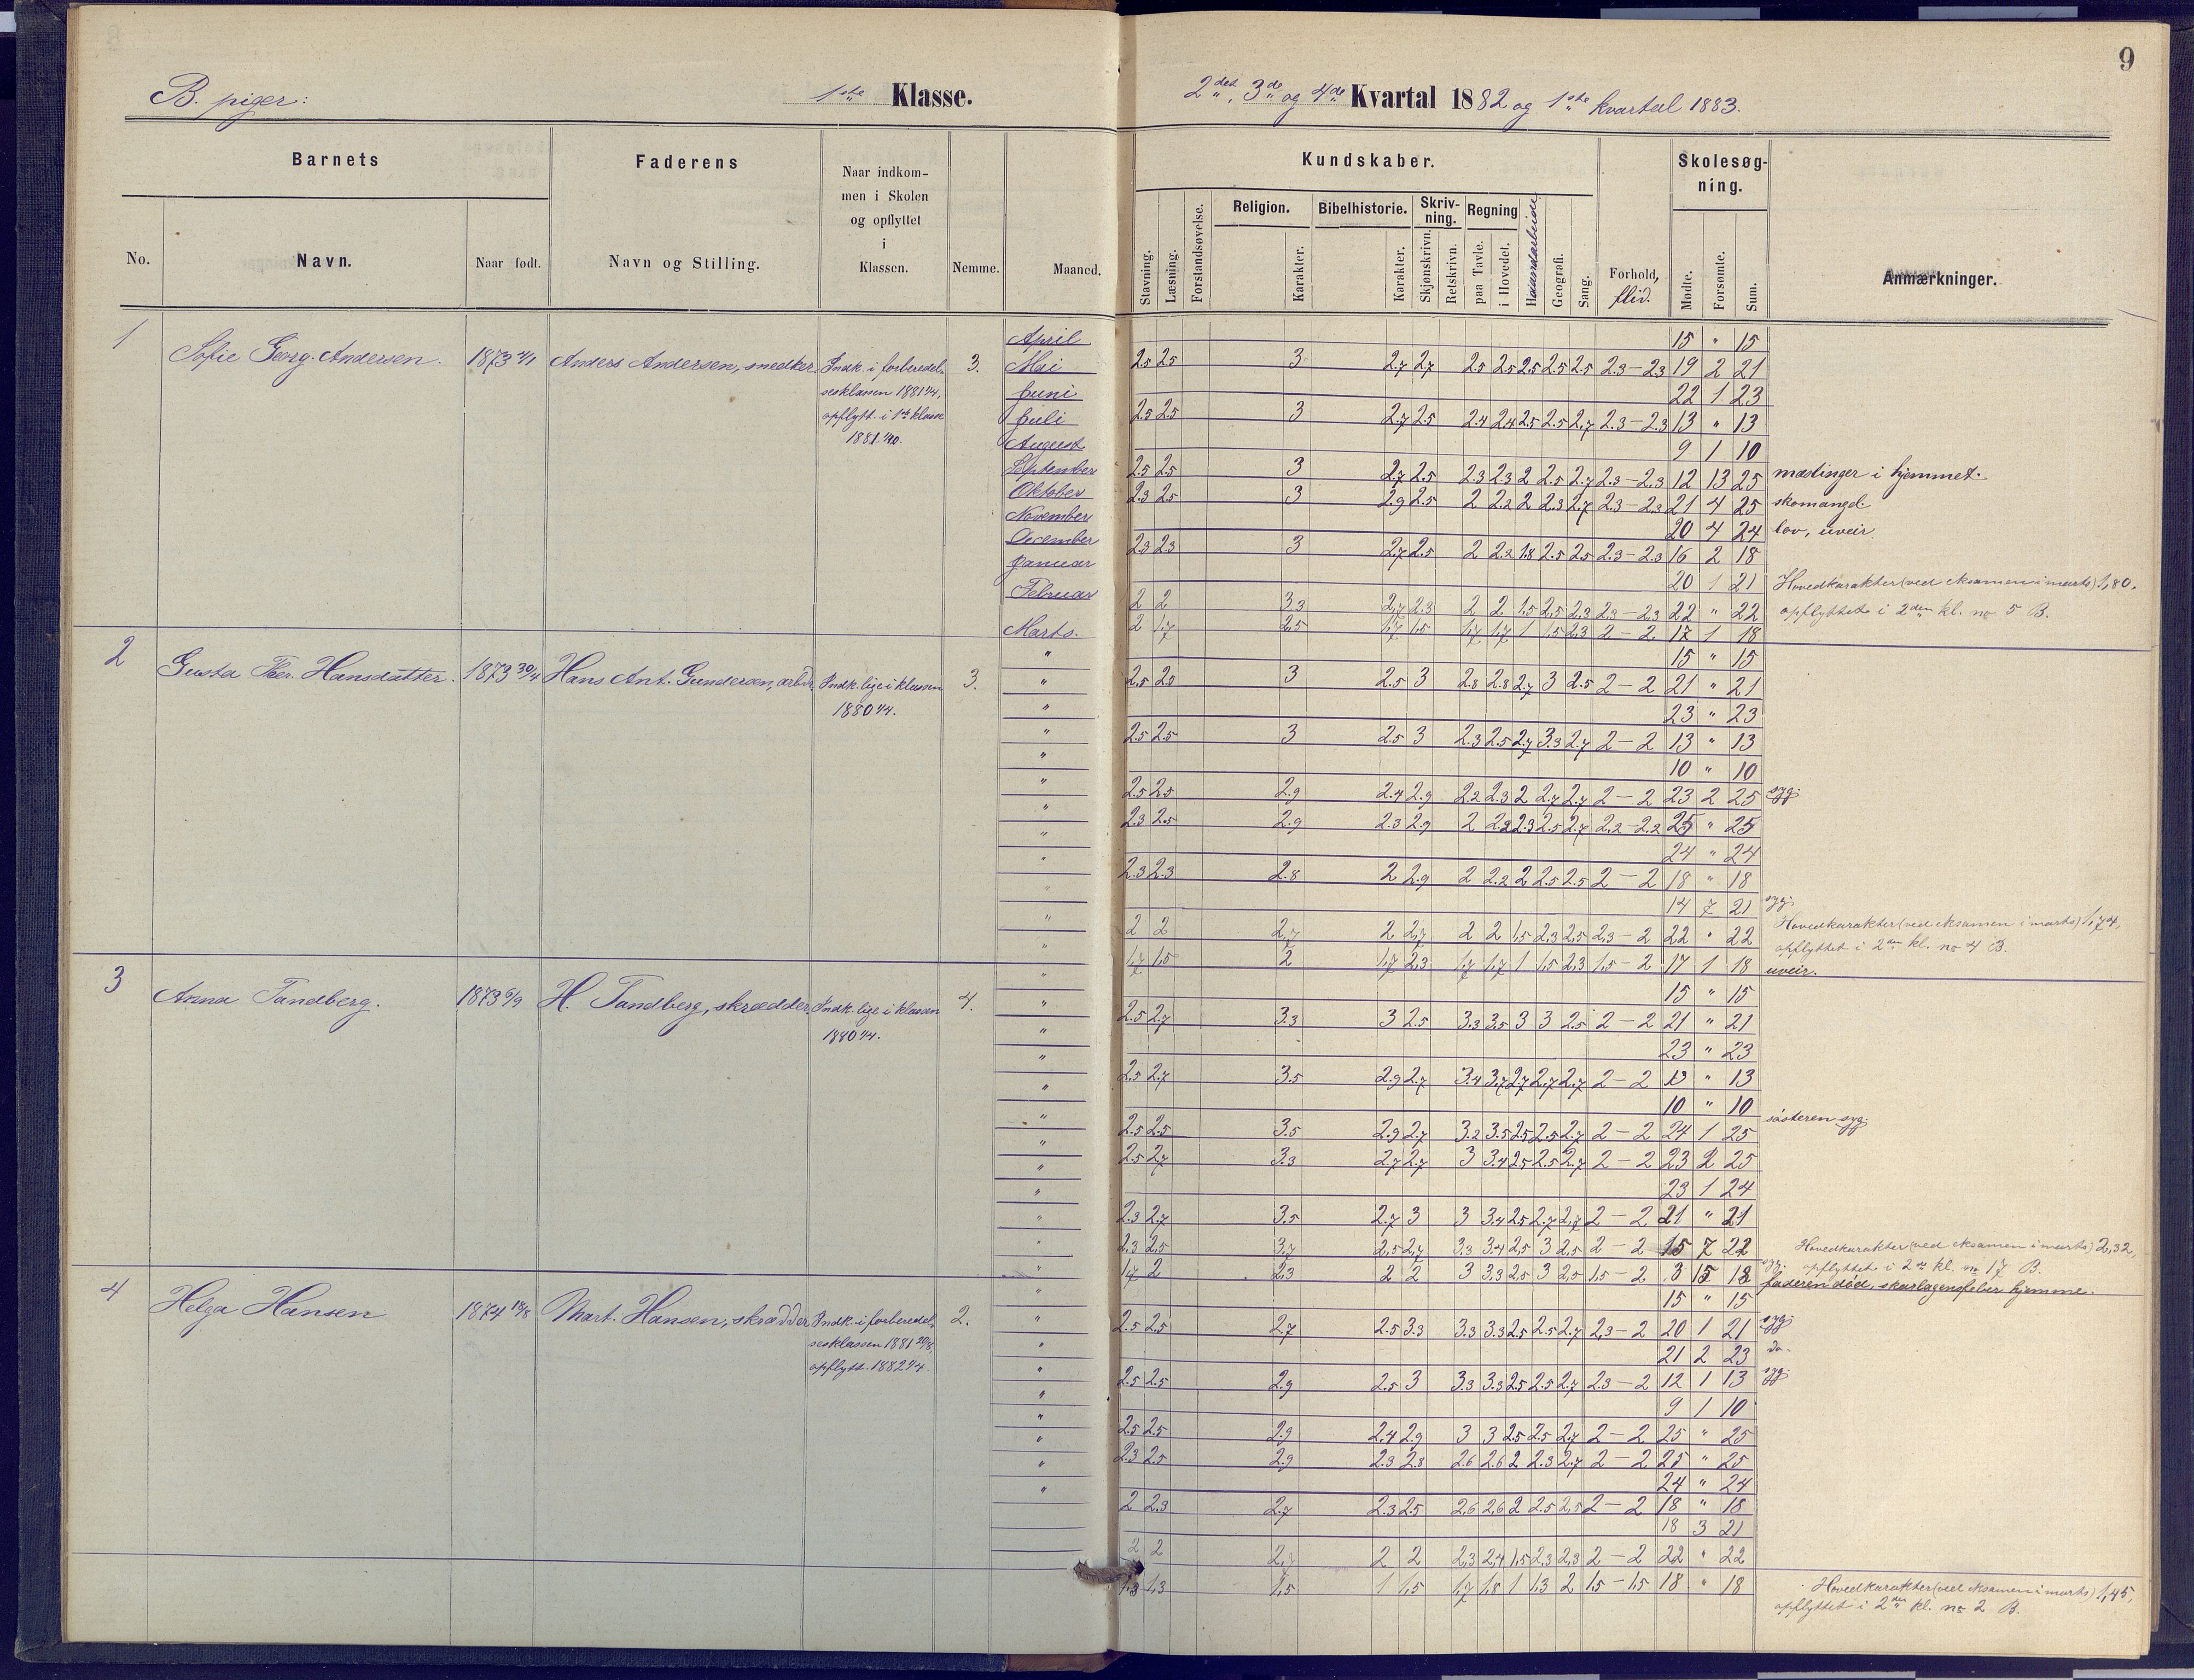 9
B. piger:
1ste Klasse.
2det, 3de og 4de Kvartal 1882 og 1ste kvartal 1883.
Barnets
Faderens
Naar indkom-
men i Skolen
og opflyttet
i
Klassen.
Nemme.
Maaned.
No.
Navn.
Naar født.
Navn og Stilling.
Kundskaber.
Skolesøg-
ning.
Stavning.
Læsning.
Forstandsøvelse.
Religion.
Karakter.
Bibelhistorie.
Karakter.
Skriv-
ning.
Skjønskrivn.
Retskrivn.
Regning
paa Tavle.
i Hovedet.
Haandarbeide
Geografi.
Sang.
Forhold,
flid.
Mødte.
Forsømte.
Sum.
Anmærkninger.
1 Sofie Georg. Andersen. 1873 Anders Andersen, snedker. Indk. i forberedel- 3.
sesklassen 1881
opflytt. i 1ste klasse
1881
April 15 " 15
Mai 2.5 2.5 3 2.7 2.7 2.5 2.5 2.5 2.5 2.5 2.3–2.3 19 2 21
Juni 22 1 23
Juli 2.5 2.5 3 2.7 2.5 2.4 2.4 2.5 2.5 2.7 2.3–2.3 13 " 13
August 9 1 10
September 2.5 2.5 3 2.7 2.5 2.3 2.3 2 2.5 2.7 2.3–2.3 12 13 25 mæslinger i hjemmet.
Oktober 2.3 2.5 3 2.9 2.5 2 2.2 2 2.3 2.7 2.3–2.3 21 4 25 skomangel.
November 20 4 24 lov, uveir.
December 2.3 2.3 3 2.7 2.5 2 2.2 1.8 2.5 2.5 2.3–2.3 16 2 18
Januar 20 1 21 Hovedkarakter (ved eksamen i marts) 1,80.
Februar 2 2 3.3 2,7 2.3 2 2 1.5 2,5 2.3 2.3–2.3 22 " 22 opflyttet i 2den kl. no 5 B.
Marts. 2 1,7 2,5 1,7 1,5 1,7 1,7 1 1,5 2,3 2–2 17 1 18
2 Gusta Ther. Hansdatter. 1873 30/4 Hans Ant. Gundersen, arbm. Indk. lige i klassen 3.
1880
" 15 " 15
" 2.5 3 2.5 3 2.8 2.8 2.7 3 2.5 2–2 21 " 21
" 23 " 23
" 2.5 2.5 3 2.5 3 2.3 2.5 2.7 3.3 2.7 2–2 13 " 13
" 10 " 10
" 2.5 2.5 2.9 2.4 2.9 2.2 2.3 2 2.7 2.7 2–2 23 2 25 syg.
" 2.3 2.5 2.9 2.3 2.9 2 2.2 2.3 2.5 2.7 2.2–2.2 25 " 25
" 24 " 24
" 2.3 2.3 2.8 2 2.9 2 2.2 2 2.5 2.5 2–2 18 " 18
" 14 7 21 syg.
" 2 2 2,7 2 2,7 2 2 1,5 2,3 2,5 2,3–2 22 " 22 Hovedkarakter (ved eksamen i marts) 1,74,
opflyttet i 2den kl. no 4 B.
" 1,7 1,5 2 1,7 2,3 1,7 1,7 1 1,5 2,3 1,5–2 17 1 18 uveir.
3 Anna Tandberg. 1873 6/9 H. Tandberg, skrædder. Indk. lige i klassen 4.
1880
" 15 " 15
" 2.5 2.7 3.3 3 2.5 3.3 3.5 3 3 2.5 2–2 21 " 21
" 23 " 23
" 2.5 2.7 3.5 2.9 2.7 3.4 3.7 2.7 2.7 2.7 2–2 13 " 13
" 10 " 10
" 2.5 2.5 3.5 2.9 2.7 3.2 3.5 2.5 2.5 2.7 2–2 24 1 25 søsteren syg.
" 2.5 2.7 3.3 2.7 2.7 3 3.4 2.5 2.5 2.7 2–2 23 2 25
" 23 1 24
" 2.3 2.7 3.5 2.7 3 3 3.4 2.5 2.7 2,7 2–2 21 " 21
" 2,3 2,5 3,7 2,5 2,7 3.3 3.4 2,5 3 2,5 2–2 15 7 22 Hovedkarakter (ved eksamen i marts) 2,32,
" 1,7 2 2,3 2 2 3 3.3 2,5 3 2,5 1,5–2 3 15 18 syg. opflyttet i 2den kl. no 17 B.
faderen død, skarlagensfeber hjemme.
4 Helga Hansen 1874 Mart. Hansen, skrædder Indk. i forberedel- 2.
sesklassen 1881
opflytt. 1882
" 15 " 15
" 2.5 2.5 2.7 2.5 3.3 3.3 3.3 2.5 2.5 2.7 2,3–2 20 1 21 syg.
" 21 2 23 do.
" 2.5 2.5 2.9 2.5 3 3.3 3.3 2.5 2.5 2.7 2.3–2 12 1 13 syg.
" 9 1 10
" 2.5 2.5 2.9 2.4 2.9 3 3 2.5 2.5 2.7 2–2 25 " 25
" 2.3 2.5 2.9 2.3 2.8 2.6 2.6 2 2.3 2.7 2–2 25 " 25
" 24 " 24
2 2.3 2.7 2.3 2.5 2,6 2,6 2 2.5 2,5 2–2 18 " 18
18 3 21
2 2 2 2 2,3 2,4 1,5 2,3 2,3 2–2 22 " 22
1,3 1,3 1,5 1 1,5 1,7 1,8 1 1,3 2 1,5–1,5 18 " 18 Hovedkarakter (ved eksamen i marts) 1,45,
opflyttet i 2den kl. no 2 B.